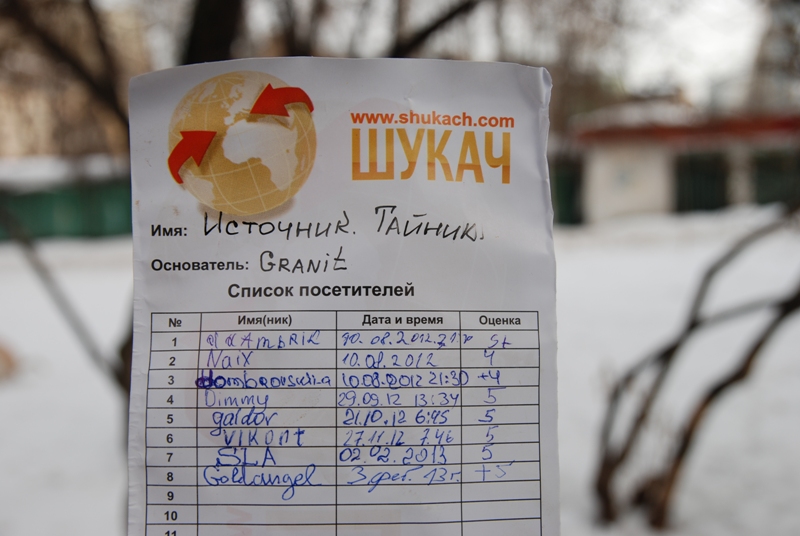 www.shukach.com
ШУКАЧ
Имя: Источник. Тайник.
Основатель: GRANIT
Список посетителей
№ Имя(ник) Дата и время Оценка
1 10.08.2012 5+
2 Naix 10.08.2012 4
3 10.08.2012 21:30 +4
4 Dimmy 29.09.12 13:34 5
5 galdor 21.10.12 6:45 5
6 VIKont 27.11.12 7.46 5
7 SLA 02.02.2013 5
8 Goldangel 3 фев. 13 г. +5
9
10
11